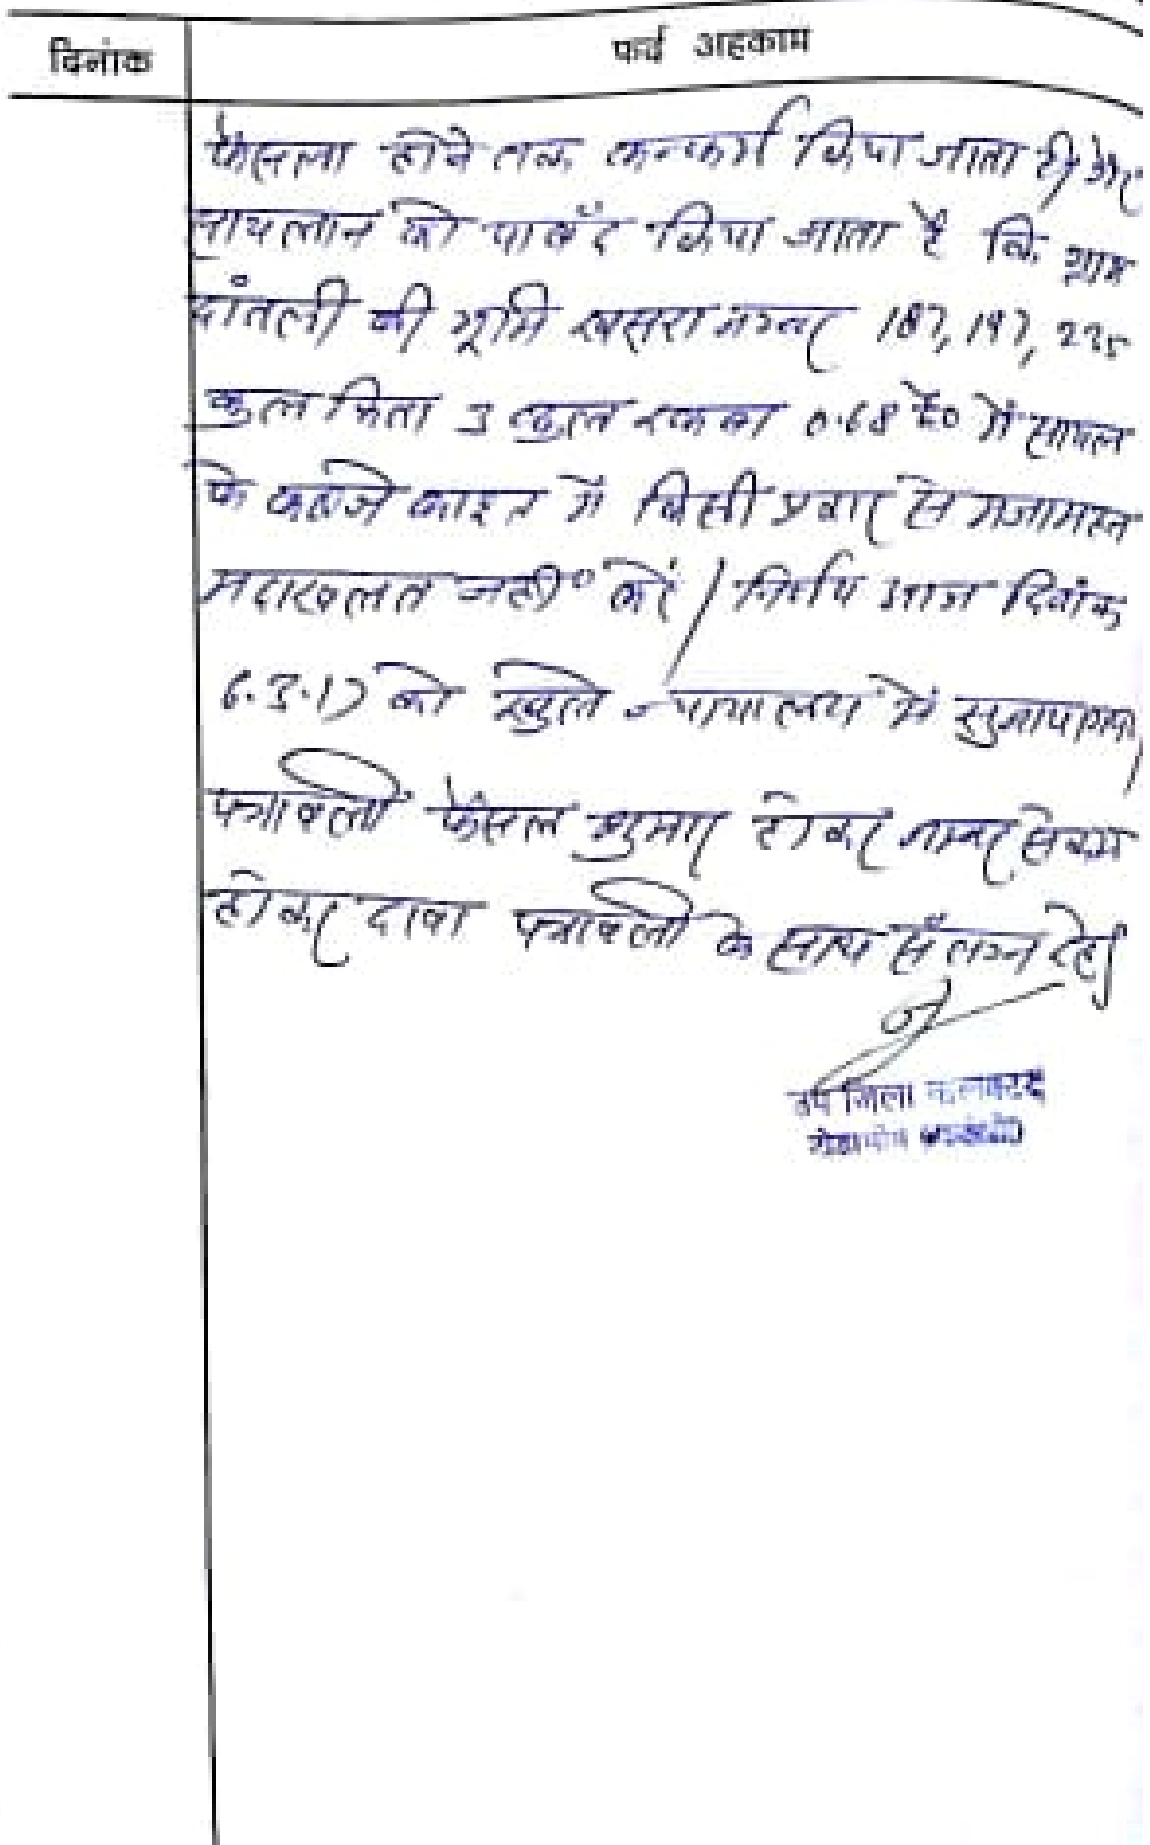 दिनांक
फर्द अहकाम
फैसला होने तक कन्फर्म किया जाता है और
सायलान को पाबंद किया जाता है कि ग्राम
दांतली की भूमि खसरा नम्बर 187, 197, 225
कुल किता 3 कुल रकबा 0.68 है0 में सायल
के कब्जे काश्त में किसी प्रकार से मजामत
मदाखलत नहीं करें। निर्णय आज दिनांक
6.3.17 को खुले न्यायालय में सुनाया गया।
पत्रावली फैसल शुमार होकर नम्बर से कम
होकर दावा पत्रावली के साथ संलग्न रहे।
उप जिला कलक्टर